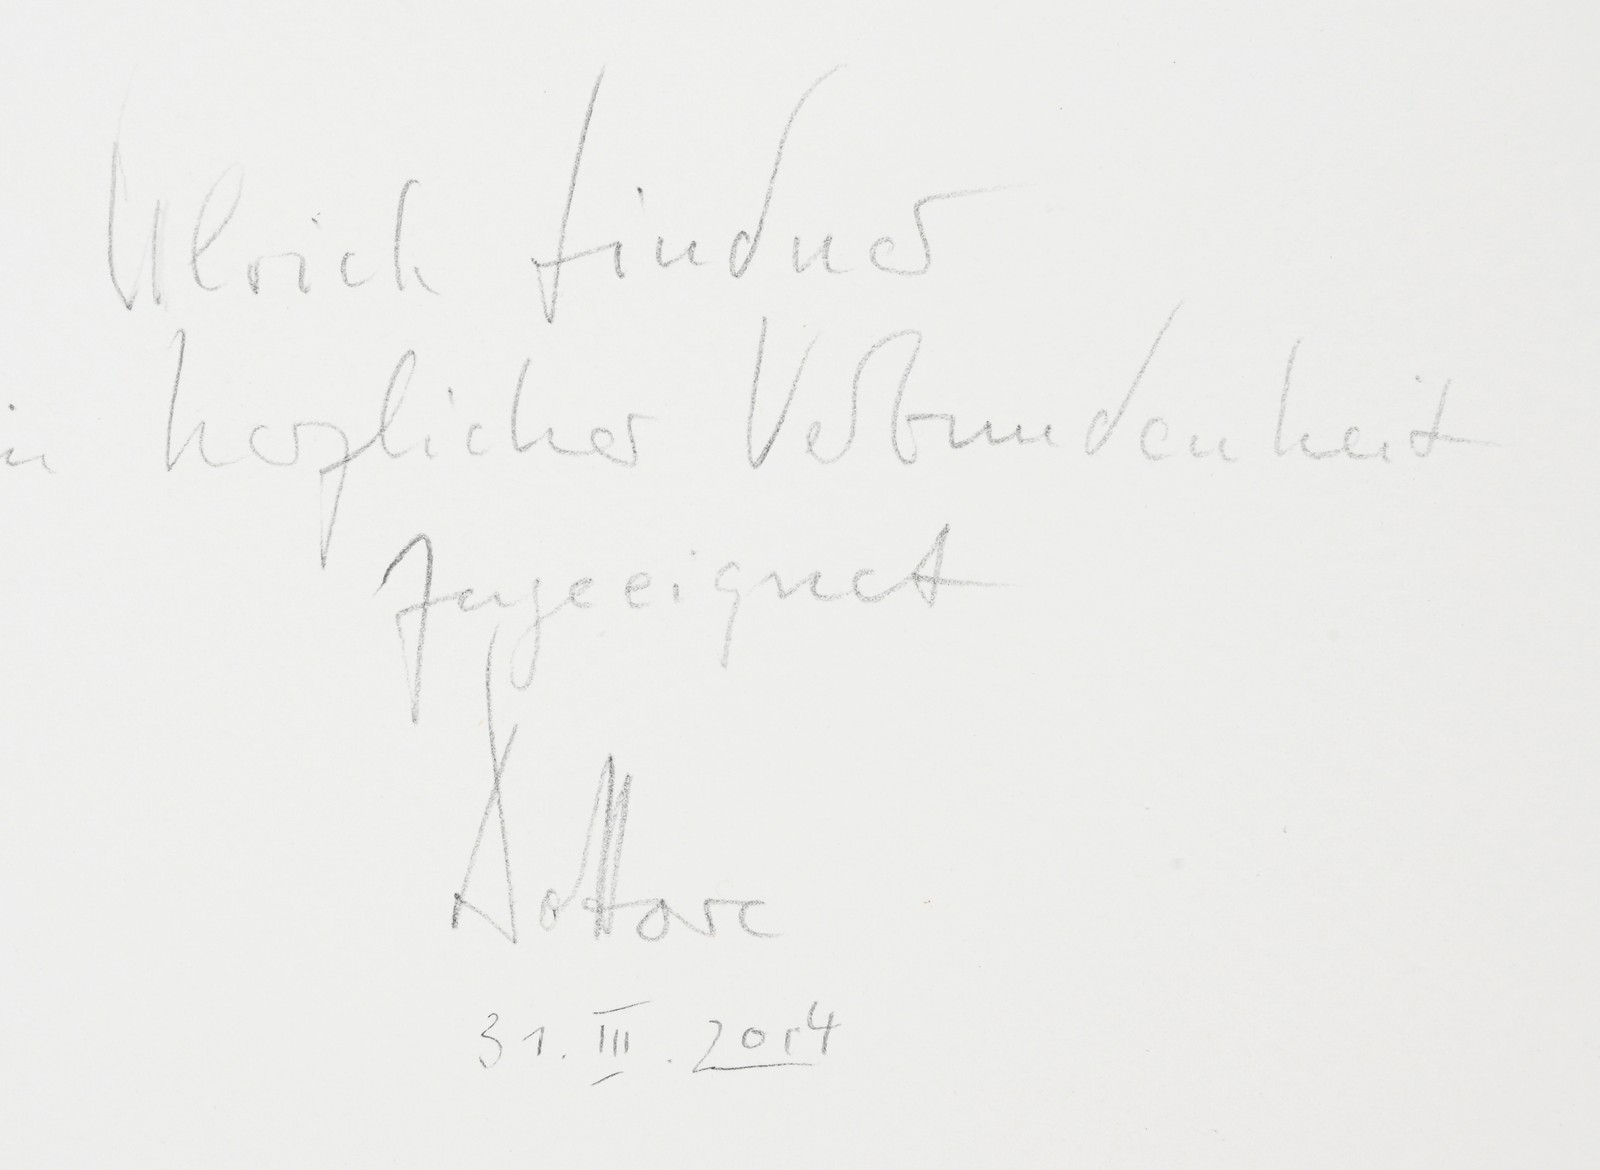 Ulrich Lindner
in herzlicher Verbundenheit
zugeeignet
Dottore
31. III. 2014